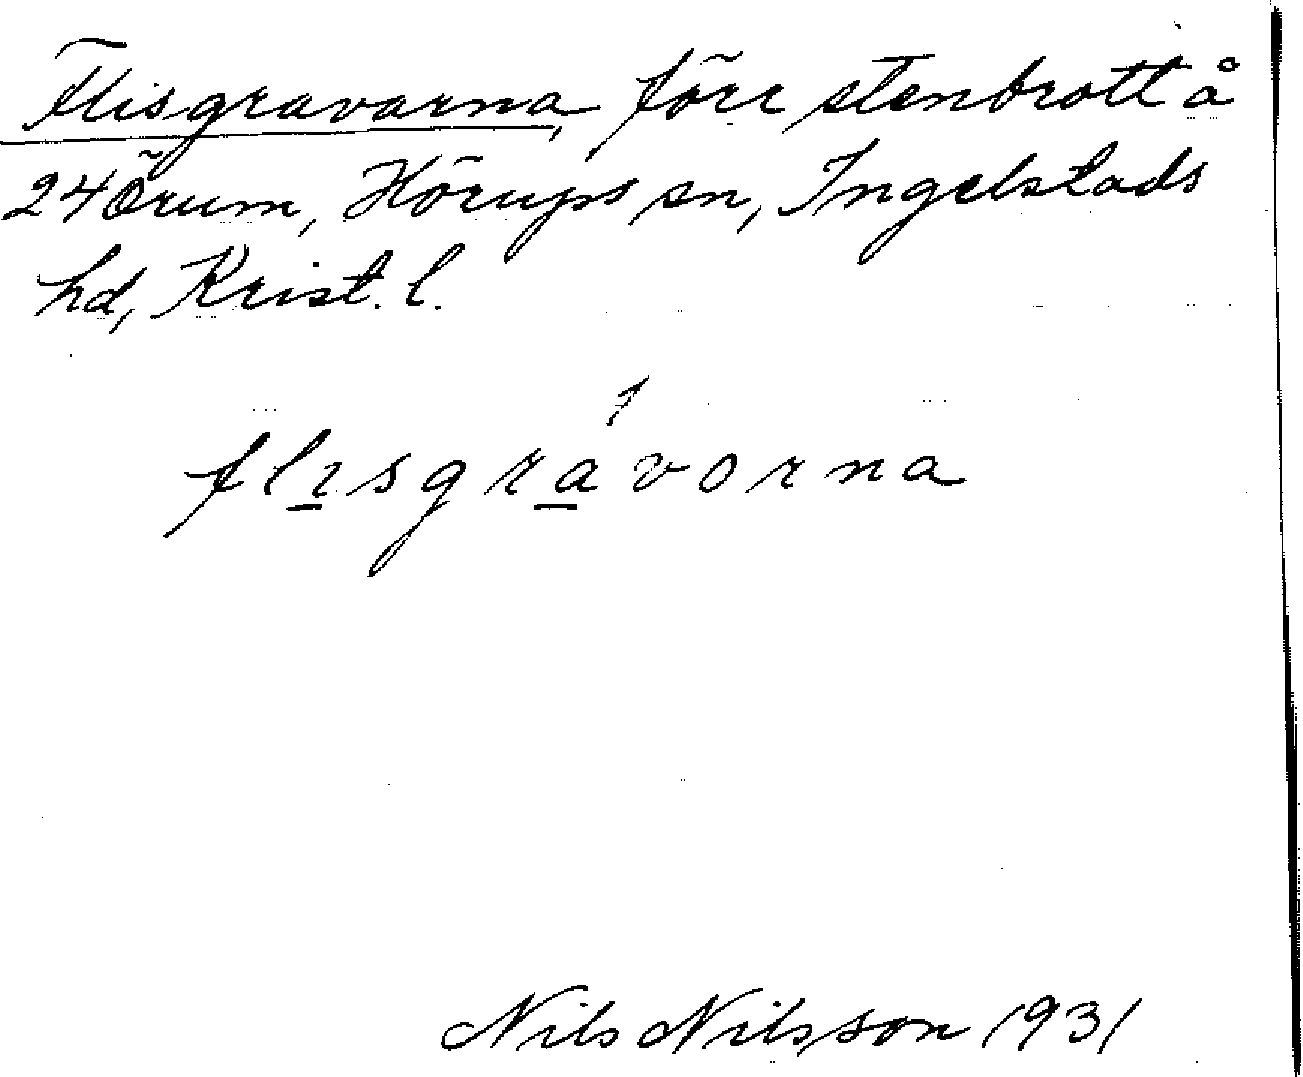 Flisgravarna, förr stenbrott å
24 Örum, Hörups sn, Ingelstads
hd, Krist. l.
flisgravorna
Nils Nilsson 1931